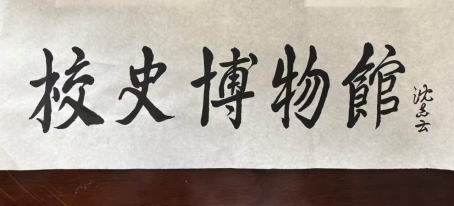 校史博物館
沈志云